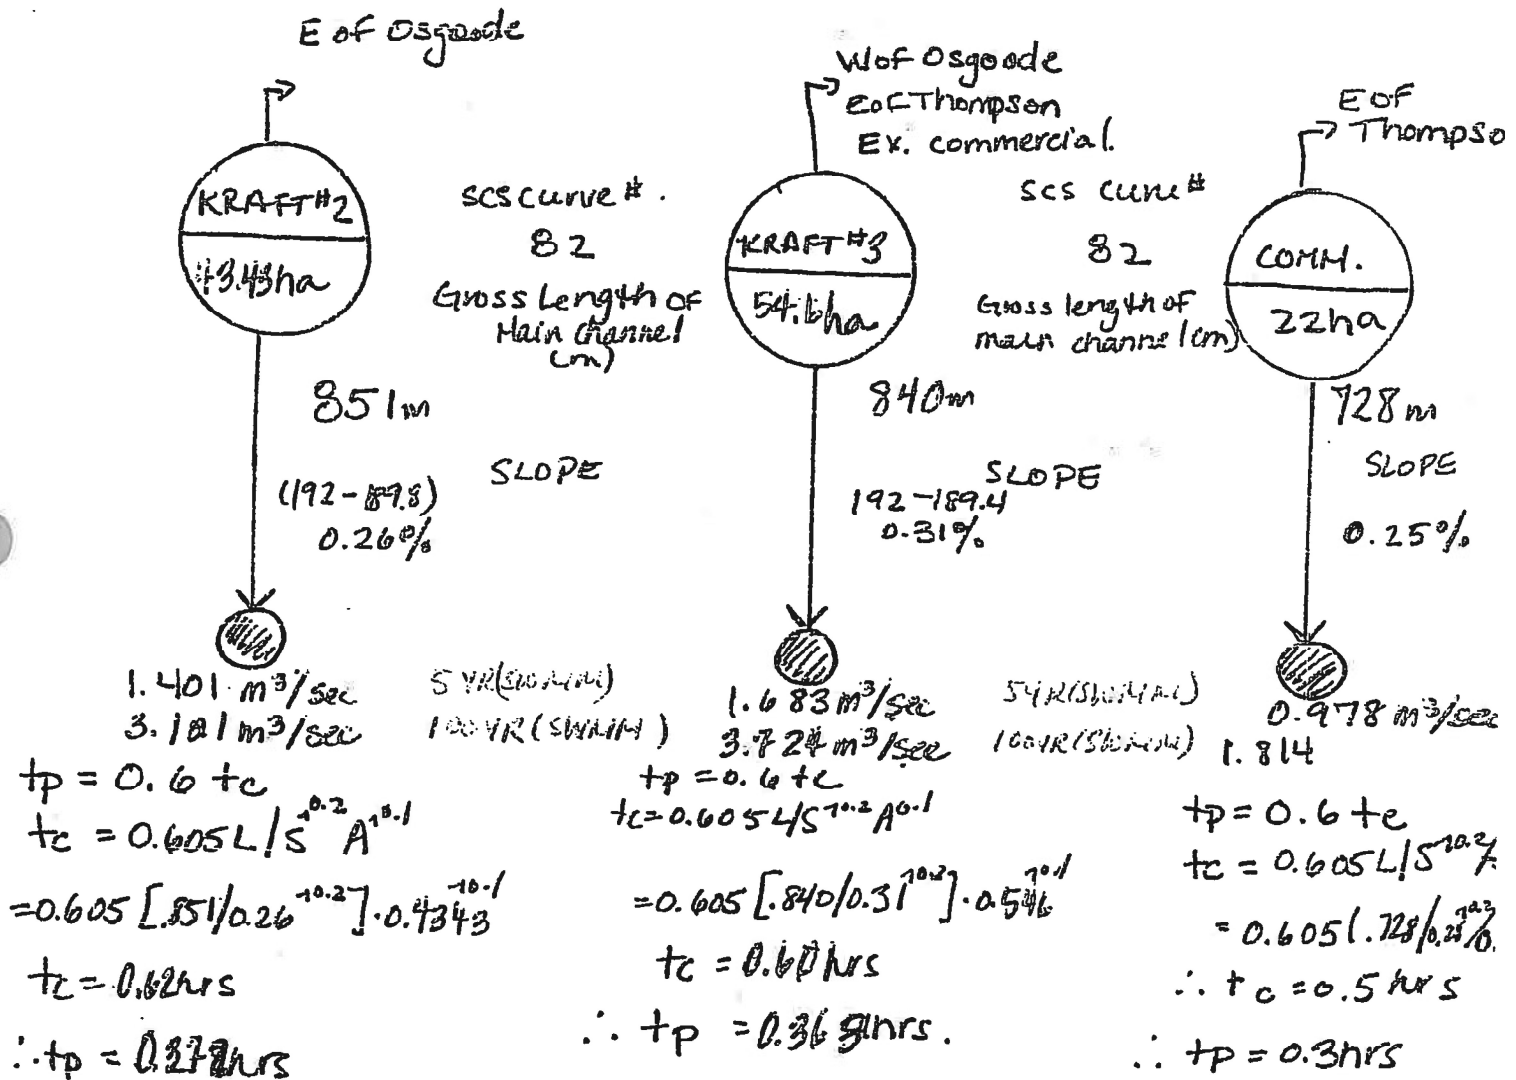 E of Osgoode
KRAFT #2
43.43ha
SCS curve #.
82
Gross Length of
Main Channel
(m)
851m
SLOPE
(192-189.8)
0.26%
1.401 m³/sec
3.181 m³/sec
5 YR(SWMM)
100YR (SWMM)
tp = 0.6 tc
tc = 0.605L/S^0.2 A^0.1
=0.605 [.851/0.26^0.2]·0.4343^0.1
tc = 0.62hrs
∴tp = 0.372hrs
W of Osgoode
E of Thompson
Ex. commercial.
KRAFT #3
54.6ha
SCS curve #
82
Gross length of
main channel (m)
840m
SLOPE
192-189.4
0.31%
1.683 m³/sec
3.724 m³/sec
5YR(SWMM)
100YR(SWMM)
tp = 0.6 tc
tc=0.605L/S^0.2 A^0.1
=0.605 [.840/0.31^0.2]·0.546^0.1
tc = 0.60hrs
∴ tp = 0.36 hrs.
E OF
Thompso
COMM.
22ha
728m
SLOPE
0.25%
0.978 m³/sec
1.814
tp = 0.6 tc
tc = 0.605L/S^0.2/
= 0.605(.728/0.25^0.2/0.
∴ tc = 0.5 hrs
∴ tp = 0.3hrs